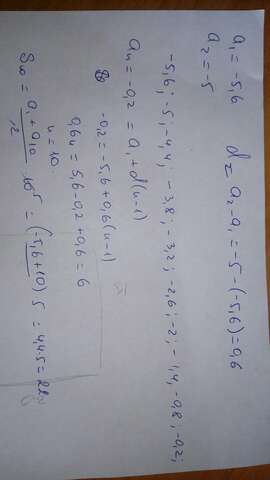 a₁ = -5,6 d = a₂ - a₁ = -5 - (-5,6) = 0,6
a₂ = -5
-5,6; -5; -4,4; -3,8; -3,2; -2,6; -2; -1,4, -0,8; -0,2;
aₙ = -0,2 = a₁ + d(n-1)
-0,2 = -5,6 + 0,6(n-1)
0,6n = 5,6 - 0,2 + 0,6 = 6
n = 10
S₁₀ = (a₁ + a₁₀)/2 · 10⁵ = (-5,6 + 10) 5 = 4,4·5 = 22